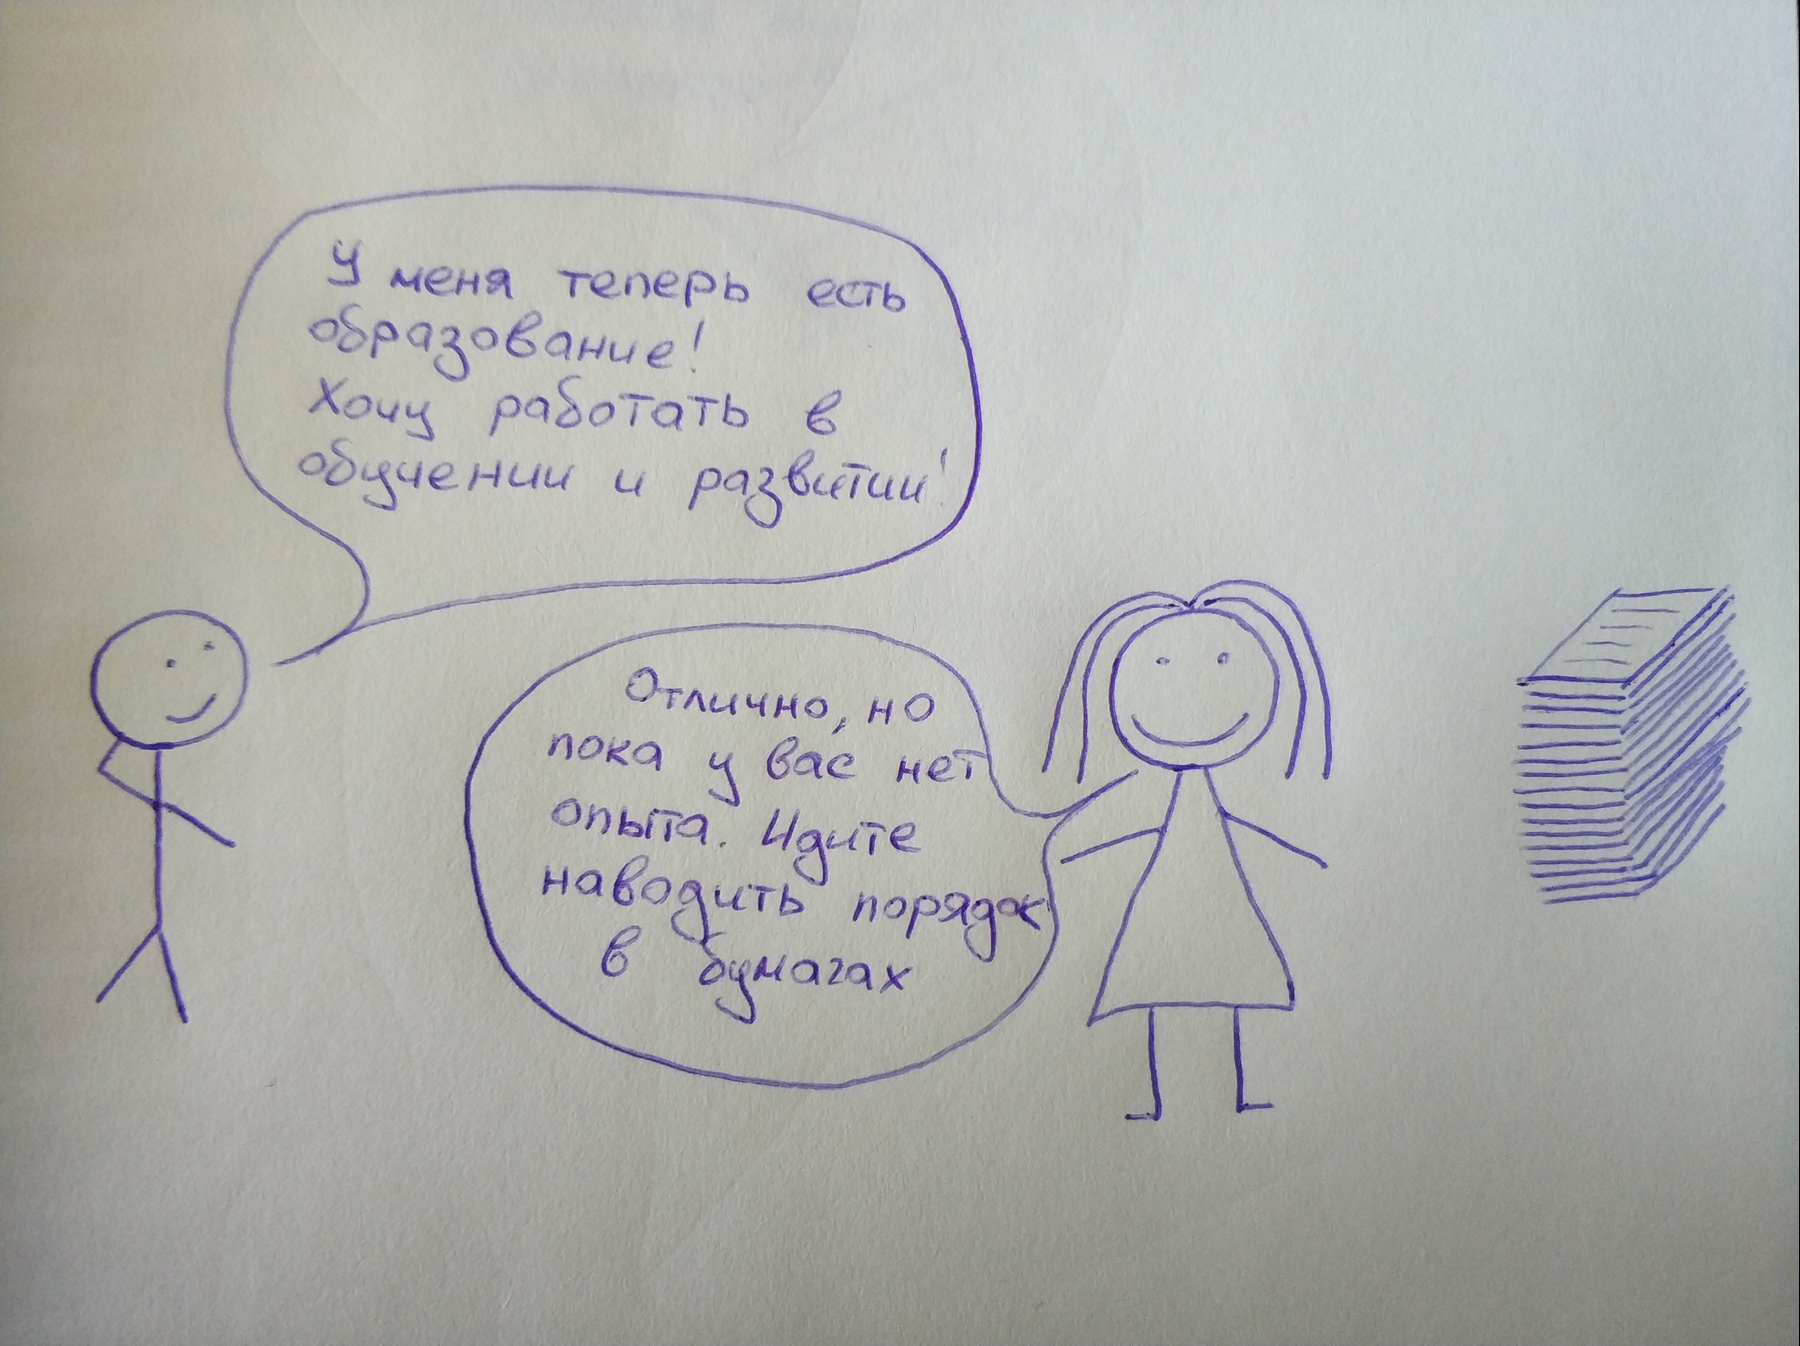 У меня теперь есть
образование!
Хочу работать в
обучении и развитии!
Отлично, но
пока у вас нет
опыта. Идите
наводить порядок
в бумагах